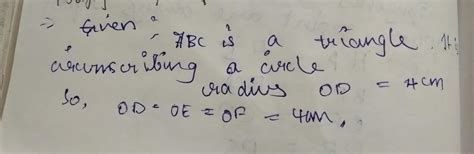 ⇒ Given : ABC is a triangle.
circumscribing a circle
radius OD = 4cm
So, OD = OE = OF = 4cm.